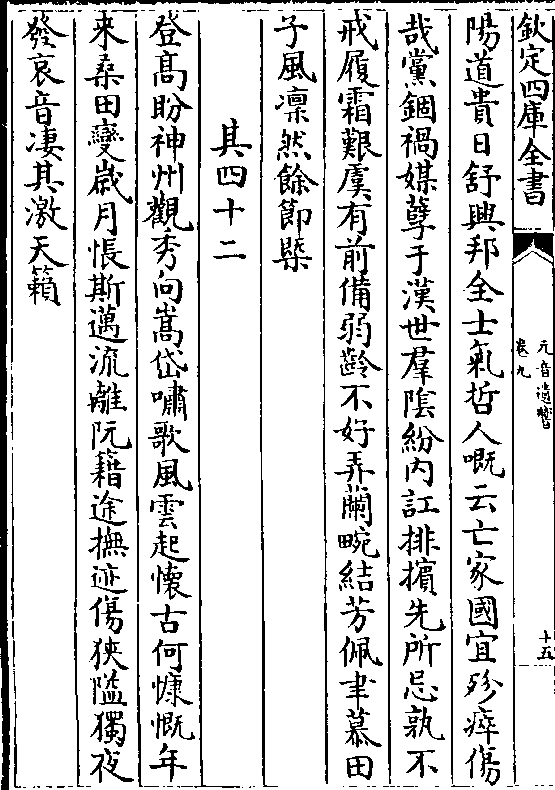 欽定四庫全書
元音遺響
卷九
十五
陽道貴日舒興邦全士氣哲人嘅云亡家國宜殄瘁傷
哉黨錮禍媒孽于漢世羣陰紛内訌排擯先所忌孰不
戒履霜艱虞有前備弱齡不好弄蘭畹結芳佩聿慕田
子風凛然餘節槩
其四十二
登髙盼神州觀秀向嵩岱嘯歌風雲起懷古何慷慨年
来桑田變歳月悵斯邁流離阮籍途撫迹傷狹隘獨夜
發哀音凄其激天籟